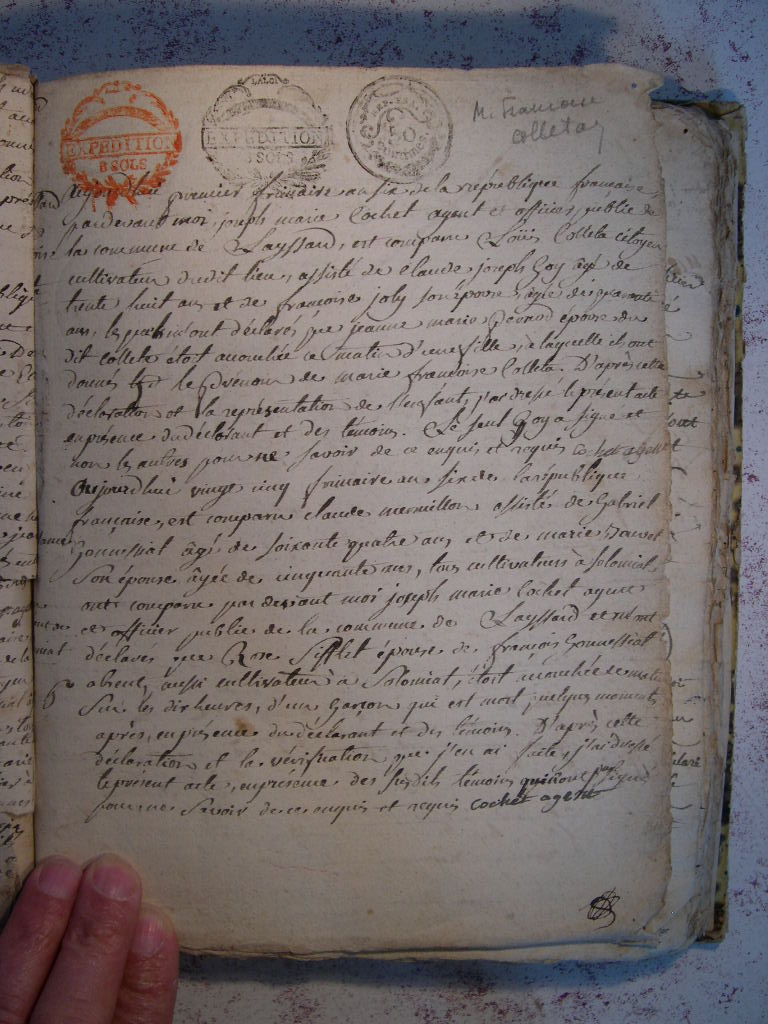 LA LOI
EXPEDITION
8 SOLS
EXPEDITION
8 SOLS
REP. FRA.
50
Centimes.
M. Francoise
Colletaz
aujourdhui premier frimaire an six de la republique francaise,
pardevant moi, joseph marie Cochet agent et officier, public de
la commune de Layssard, est comparu Loüis Colleta citoyen
cultivateur dudit lieu, assisté de claude joseph Goy âgé de
trente huit ans et de françoise joly son épouse âgée de
ans, lesquels m'ont déclarés que jeanne marie épouse du
dit Colleta etoit accouchée ce matin d'une fille, a laquelle ils ont
donnés le Prénom de marie francoise Colleta. D'après cette
déclaration et la représentation de l'enfant, j'ai dressé le présent acte
en présence du déclarant et des témoins. Le seul Goy a signé et
non les autres pour ne savoir de ce enquis et requis Cochet agent
Aujourdhui vingt cinq frimaire an six de la république
française, est comparu claude mermillon assisté de Gabriel
Gonnessiat âgé de soixante quatre ans et de marie
son épouse âgée de cinquante ans, tous cultivateurs à Solomiat,
ont comparu pardevant moi joseph marie Cochet agent
et officier public de la commune de Layssard et m'ont
déclarés que Rose Sifflet épouse de françois Gonnessiat
absent, aussi cultivateur à Solomiat, étoit accouchée ce matin
Sur les dix heures, d'un Garçon qui est mort quelques moments
après, en présence du déclarant et des témoins. D'après cette
déclaration et la vérification que j'en ai faite, j'ai dressé
le présent acte, en présence des susdits témoins qui n'ont pas signé
pour ne Savoir de ce enquis et requis Cochet agent